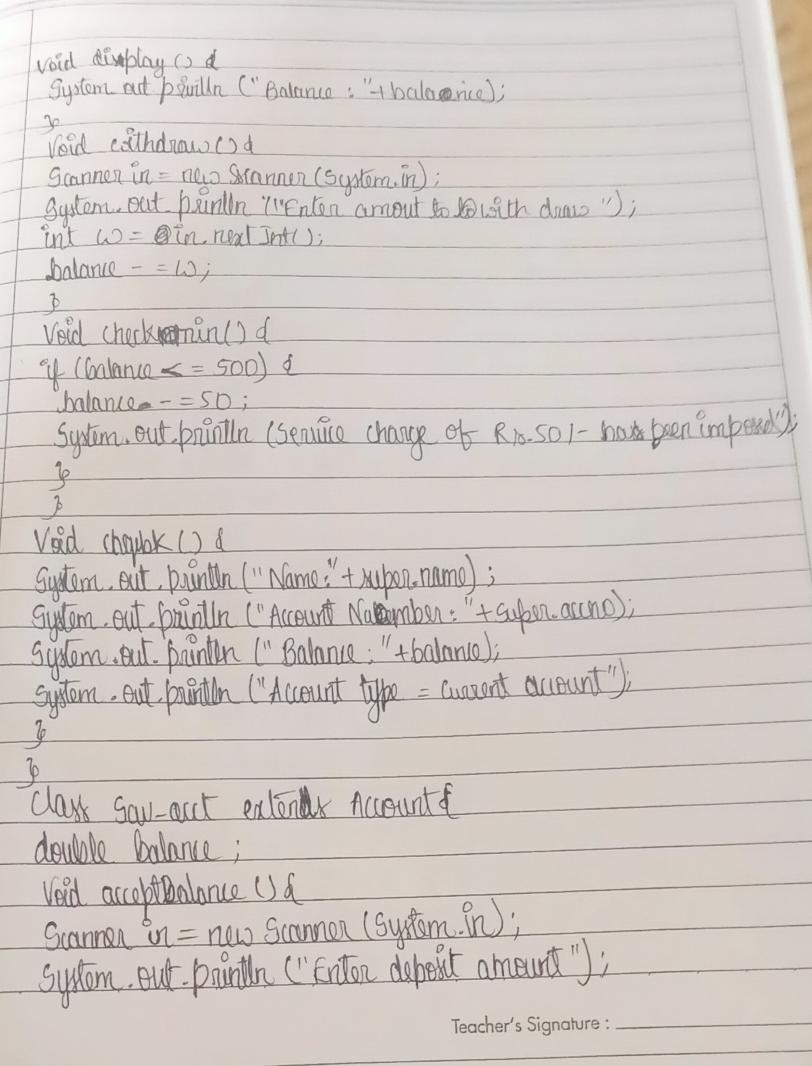 void display () {
System out println ("Balance : "+balance);
}
Void withdraw () {
Scanner in = new Scanner (System.in);
System.out.println ("Enter amout to with draw ");
int w = in.nextInt();
balance - = w;
}
Void checkmin() {
if (balance < = 500) {
balance - = 50 ;
System.out.println (Service charge of Rs.50/- has been imposed");
}
}
Void chqubk () {
System.out.println ("Name:"+super.name);
System.out.println ("Account Number: "+super.accno);
System.out.println ("Balance : "+balance);
System.out.println ("Account type = Current account");
}
}
Class Sav-acct extends Account {
double balance ;
Void acceptBalance () {
Scanner in = new Scanner (System.in);
System.out.println ("Enter deposit amount");
Teacher's Signature :